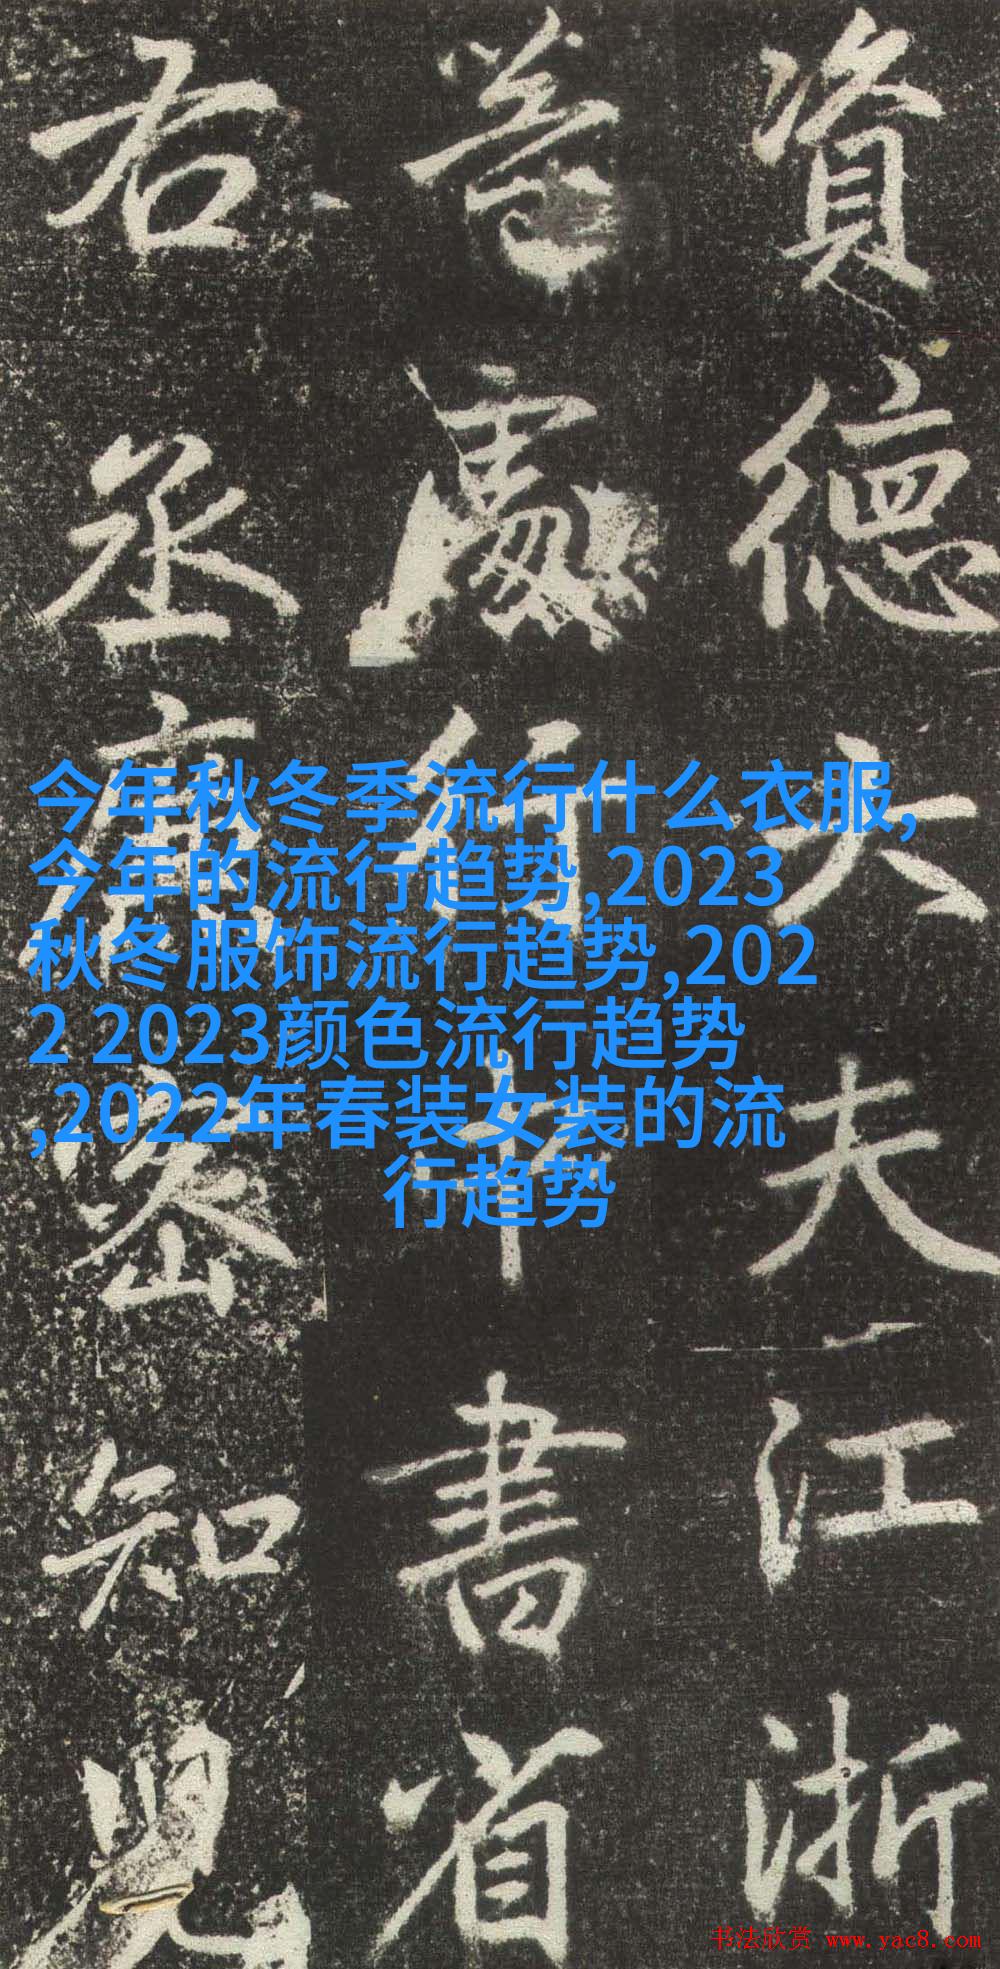 資德大夫江浙
等處行中書省
右丞廉密知兒
今年秋冬季流行什么衣服,
今年的流行趋势,2023
秋冬服饰流行趋势,202
2 2023颜色流行趋势
,2022年春装女装的流
行趋势
书法欣赏 www.yac8.com